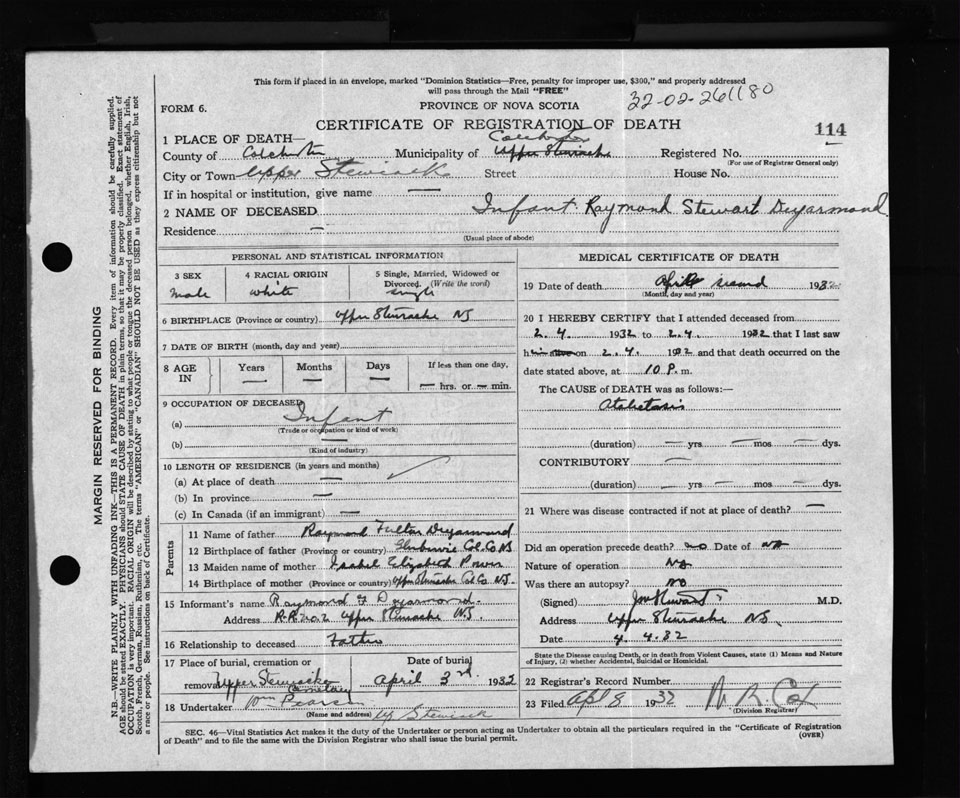 This form if placed in an envelope, marked "Dominion Statistics—Free, penalty for improper use, $300," and properly addressed
will pass through the Mail "FREE"
32-02-261180
FORM 6.
PROVINCE OF NOVA SCOTIA
CERTIFICATE OF REGISTRATION OF DEATH
114
1 PLACE OF DEATH—
Colchester
County of Colchester Municipality of Upper Stewiacke Registered No.
(For use of Registrar General only)
City or Town Upper Stewiacke Street House No.
If in hospital or institution, give name —
2 NAME OF DECEASED Infant Raymond Stewart Deyarmond
Residence —
(Usual place of abode)
PERSONAL AND STATISTICAL INFORMATION
3 SEX 4 RACIAL ORIGIN 5 Single, Married, Widowed or
Divorced. (Write the word)
male white single
6 BIRTHPLACE (Province or country) Upper Stewiacke NS
7 DATE OF BIRTH (month, day and year)
8 AGE IN Years Months Days If less than one day,
— — — — hrs. or — min.
9 OCCUPATION OF DECEASED
(a) Infant
(Trade or occupation or kind of work)
(b) —
(Kind of industry)
10 LENGTH OF RESIDENCE (in years and months)
(a) At place of death —
(b) In province —
(c) In Canada (if an immigrant) —
Parents
11 Name of father Raymond Fulton Deyarmond
12 Birthplace of father (Province or country) Col. Co NS
13 Maiden name of mother Isabel Elizabeth Power
14 Birthplace of mother (Province or country) Upper Stewiacke Col Co NS.
15 Informant's name Raymond F Deyarmond.
Address R.R. no. 2 Upper Stewiacke NS.
16 Relationship to deceased Father
17 Place of burial, cremation or Date of burial
removal Upper Stewiacke Cemetery April 3rd, 1932
18 Undertaker Wm Pearson
(Name and address) Up Stewiack
MEDICAL CERTIFICATE OF DEATH
19 Date of death April second 1932
(Month, day and year)
20 I HEREBY CERTIFY that I attended deceased from
2. 4. 1932 to 2. 4. 1932 that I last saw
him alive on 2. 4. 1932 and that death occurred on the
date stated above, at 10 P. m.
The CAUSE of DEATH was as follows:—
Atelectasis
(duration) — yrs — mos — dys.
CONTRIBUTORY —
(duration) — yrs — mos — dys.
21 Where was disease contracted if not at place of death? —
Did an operation precede death? no Date of No
Nature of operation No
Was there an autopsy? No
(Signed) Stewart M.D.
Address Upper Stewiacke NS.
Date 4. 4. 32
State the Disease causing Death, or in death from Violent Causes, state (1) Means and Nature
of Injury, (2) whether Accidental, Suicidal or Homicidal.
22 Registrar's Record Number
23 Filed Apl 8 1932 Cox
(Division Registrar)
SEC. 46—Vital Statistics Act makes it the duty of the Undertaker or person acting as Undertaker to obtain all the particulars required in the "Certificate of Registration
of Death" and to file the same with the Division Registrar who shall issue the burial permit.
(OVER)
MARGIN RESERVED FOR BINDING
N.B.—WRITE PLAINLY WITH UNFADING INK—THIS IS A PERMANENT RECORD. Every item of information should be carefully supplied.
AGE should be stated EXACTLY. PHYSICIANS should STATE CAUSE OF DEATH in plain terms, so that it may be properly classified. Exact statement of
OCCUPATION is very important. RACIAL ORIGIN will be described by stating to what people or tongue the deceased person belonged, whether English, Irish,
Scotch, French, German, Russian, Ruthenian, etc. The terms "AMERICAN" or "CANADIAN" SHOULD NOT BE USED as they express citizenship but not
a race or people. See instructions on back of Certificate.